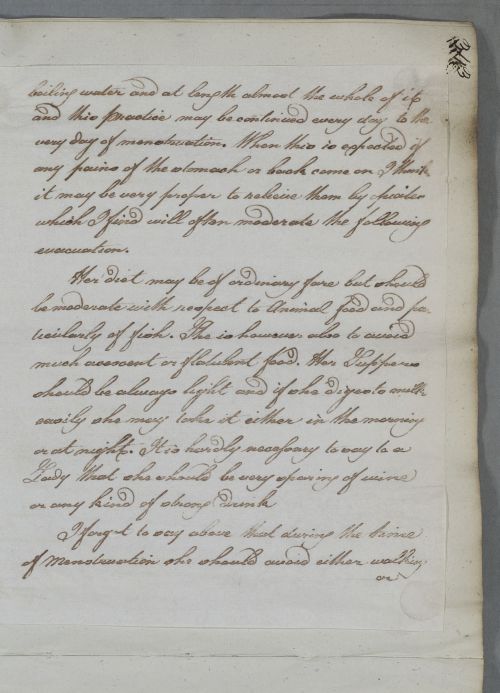 boiling water and at length almost the whole of it
and this practice may be continued every day to the
very day of menstruation. When this is expected if
any pains of the stomach or back come on I think
it may be very proper to relieve them by opiates
which I find will often moderate the following
evacuation.
Her diet may be of ordinary fare but should
be moderate with respect to Animal food and par
ticularly of fish. She is however also to avoid
much acescent or flatulent food. Her Suppers
should be always light and if she digests milk
easily she may take it either in the morning
or at night. It is hardly necessary to say to a
Lady that she should be very sparing of wine
or any kind of strong drink
I forgot to say above that during the time
of menstruation she should avoid either walking
or